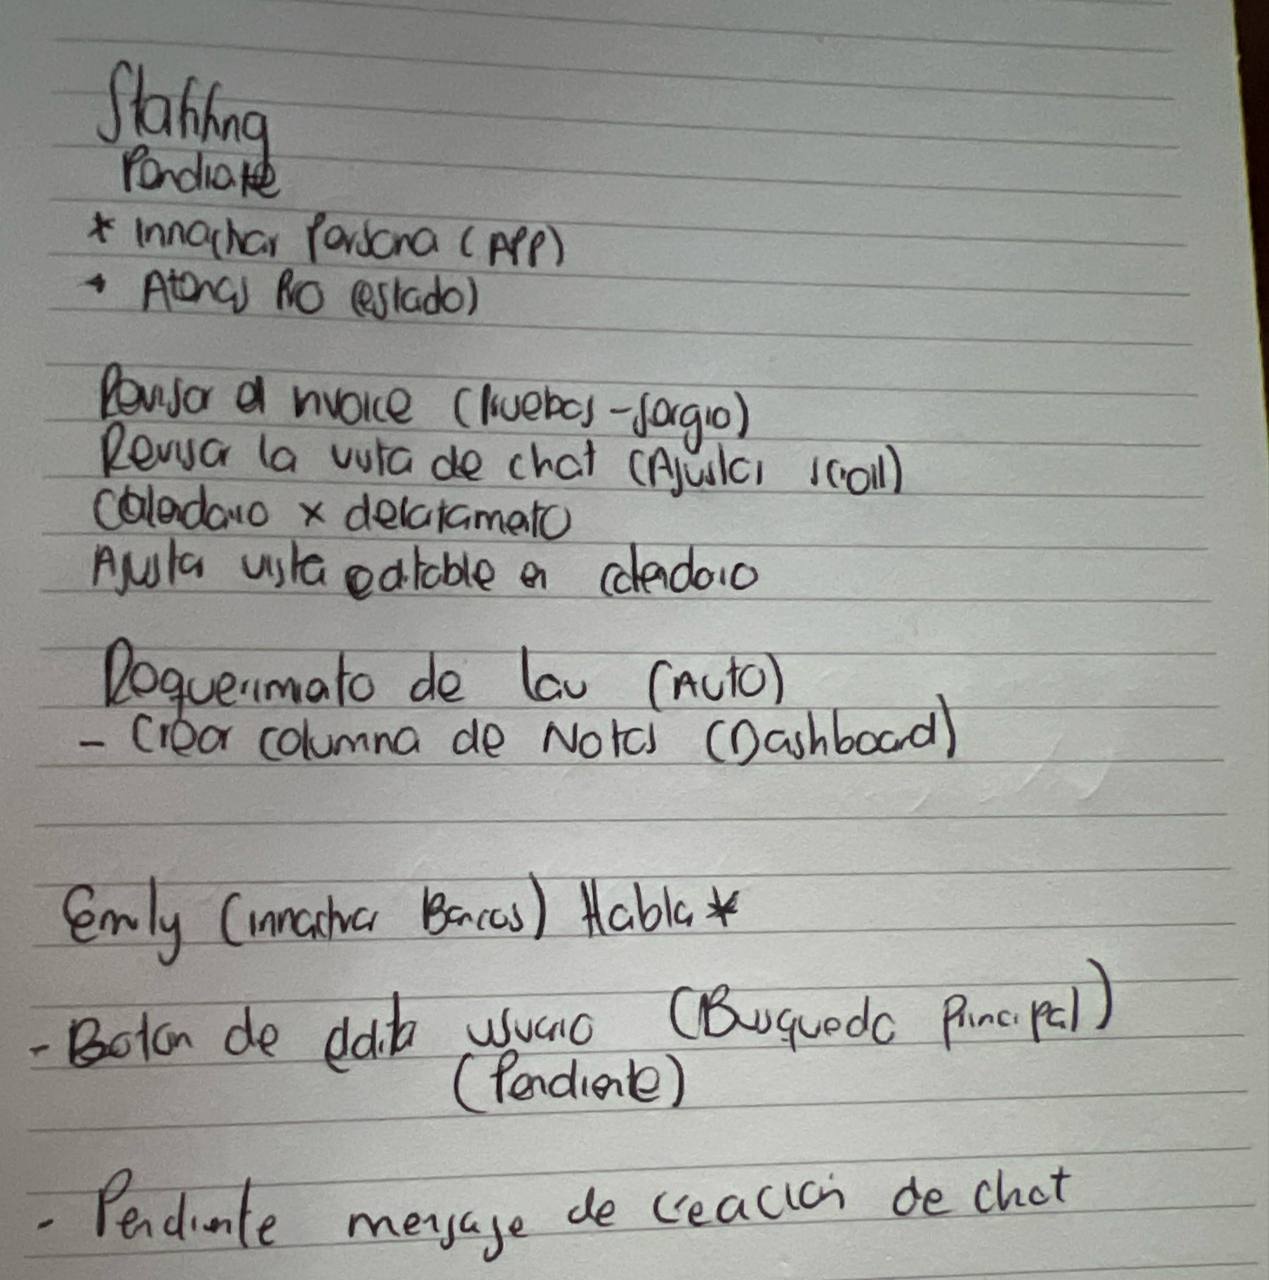 Staffing
Pendiente
* Innactivar Persona (APP)
* Atenas RO (estado)
Revisar el invoice (Pruebas - Sergio)
Revisar la vista de chat (Ajustar scroll)
Calendario x departamento
Ajustar vista editable en calendario
Requerimiento de Lau (Auto)
- Crear columna de Notas (Dashboard)
Emily (innactivar Bancos) Hablar *
- Boton de edita usuario (Busqueda Principal)
(Pendiente)
- Pendiente mensaje de creación de chat